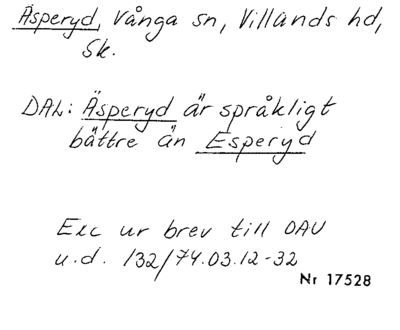 Äsperyd, Vånga sn, Villands hd,
Sk.
DAL: Äsperyd är språkligt
bättre än Esperyd
Exc ur brev till OAU
u.d. 132/74.03.12-32
Nr 17528